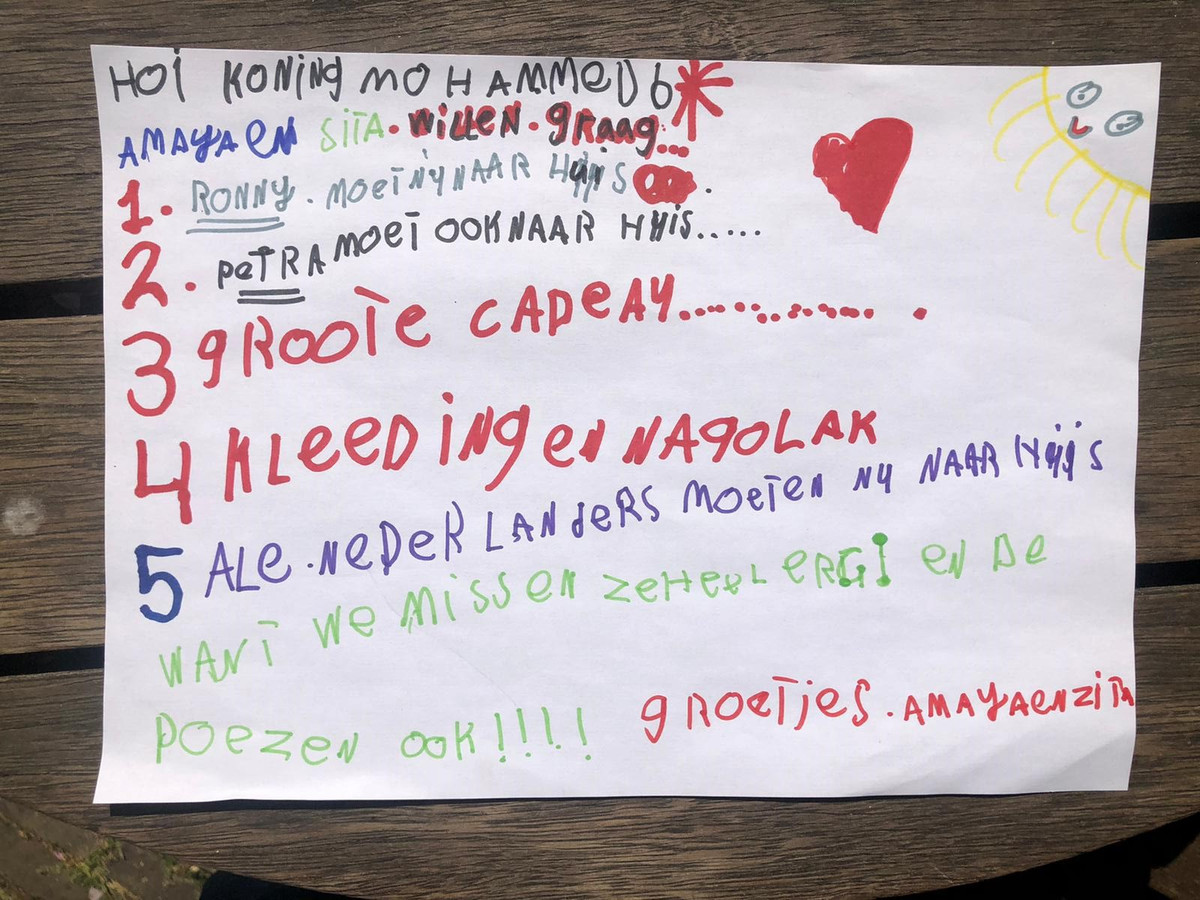 HOi KONiNg MOHAMMED 6
AMAYA EN SiTA. willEN. gRaag...
1. RONNY. MOET NY NAAR HYiS.
2. PeTRA MOET OOK NAAR HYiS.....
3 gROOTE CADEAY..................
4 KLeeDiNg eN NAgOLAK
5 ALE. NEDERLANdERS MOETEN NY NAAR HYijS
WANT We MISSEN ZE HEEL ERGI EN DE
POEZEN OOK!!!! gROETjES. AMAYA EN ZiTA